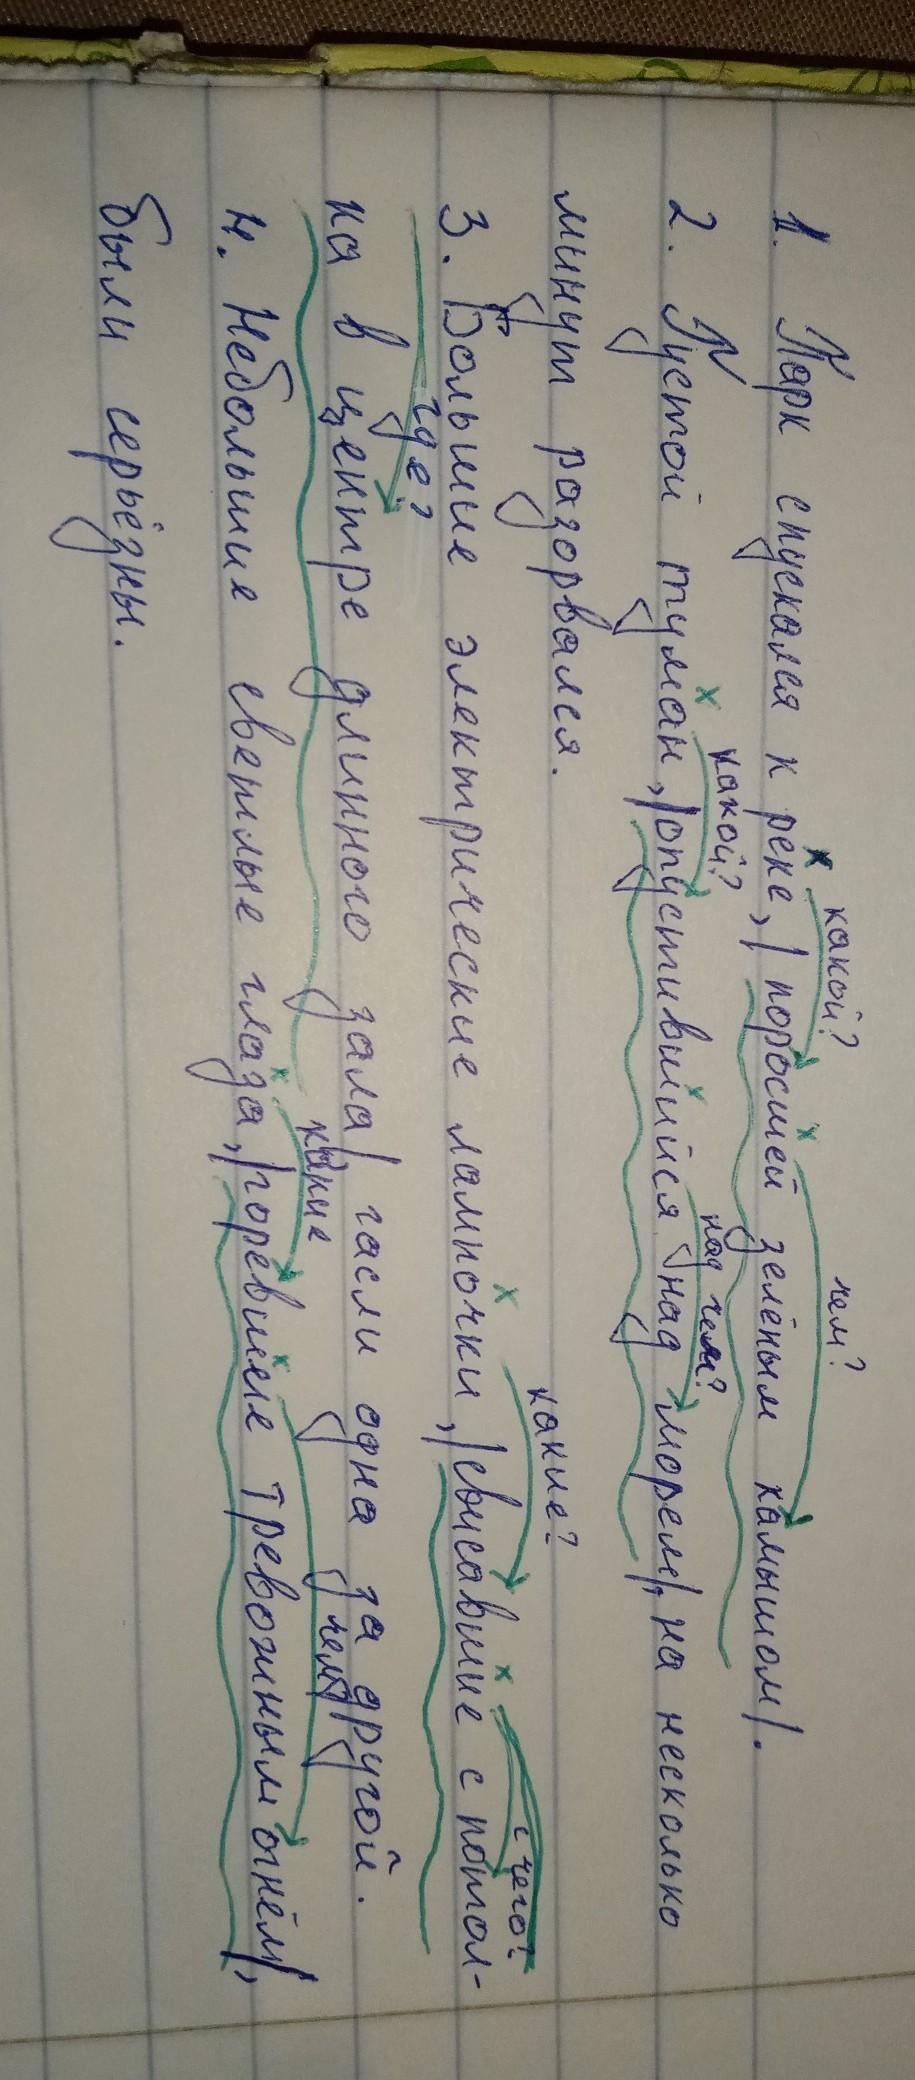 какой? чем?
1. Парк спускался к реке, | поросшей зелёным камышом |.
какой? над чем?
2. Густой туман, | опустившийся над морем |, на несколько
минут разорвался.
какие? с чего?
3. Большие электрические лампочки, | свисавшие с потол-
где?
ка в центре длинного зала | гасли одна за другой.
какие чем?
4. Небольшие светлые глаза, | горевшие тревожным огнём |,
были серьёзны.